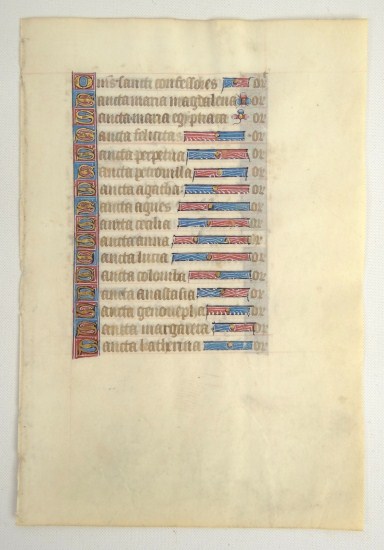 Om̅s sancti confessores or
Sancta maria magdalena or
Sancta maria egyptiaca or
Sancta felicitas or
Sancta perpetua or
Sancta petronilla or
Sancta agatha or
Sancta agnes or
Sancta cecilia or
Sancta anna or
Sancta lucia or
Sancta columba or
Sancta anastasia or
Sancta genouepha or
Sancta margareta or
Sancta katherina or